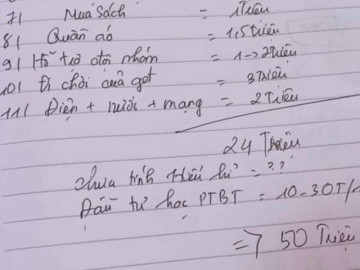 7/ Mua sách = 1 Triệu
8/ Quần áo = 1,5 triệu
9/ Hỗ trợ đội nhóm = 1->2 Triệu
10/ Đi chơi của gđ = 3 Triệu
11/ Điện + nước + mạng = 2 Triệu
24 Triệu
Chưa tính Hiếu hỉ = ??
Đầu tư học PTBT = 10-30T/
=> 50 Triệu